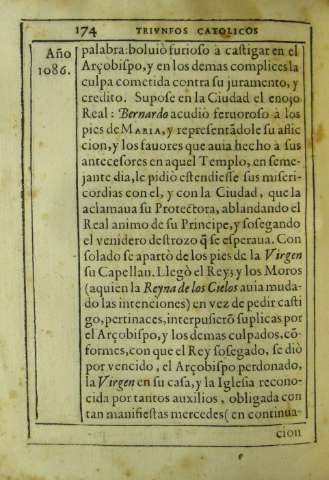 174 TRIVNFOS CATOLICOS
Año
1086.
palabra: boluiò furioso à castigar en el
Arçobispo, y en los demas complices la
culpa cometida contra su juramento, y
credito. Supose en la Ciudad el enojo
Real: Bernardo acudiò feruoroso à los
pies de MARIA, y representãdole su aflic
cion, y los fauores que auia hecho à sus
antecesores en aquel Templo, en seme-
jante dia, le pidiò estendiesse sus miseri-
cordias con el, y con la Ciudad, que la
aclamaua su Protectora, ablandando el
Real animo de su Principe, y sosegando
el venidero destrozo q̃ se esperaua. Con
solado se apartò de los pies de la Virgen
su Capellan. Llegò el Rey; y los Moros
(aquien la Reyna de los Cielos auia muda-
do las intenciones) en vez de pedir casti
go, pertinaces, interpusierõ suplicas por
el Arçobispo, y los demas culpados, cõ-
formes, con que el Rey sosegado, se diò
por vencido, el Arçobispo perdonado,
la Virgen en su casa, y la Iglesia recono-
cida por tantos auxilios, obligada con
tan manifiestas mercedes (en continua-
cion